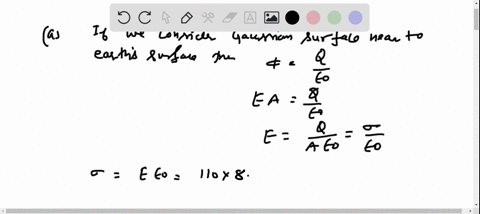 (a) If we consider Gaussian surface near to
earth's surface then
ϕ = Q/ε0
E A = Q/ε0
E = Q/(A ε0) = σ/ε0
σ = E ε0 = 110 × 8.